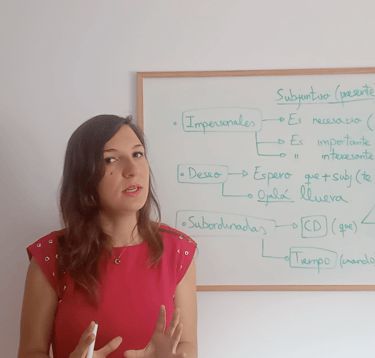 Subjuntivo (presente
• Impersonales → Es necesario (
→ Es importante
→ " interesante
• Deseo → Espero que + Subj (te
→ Ojalá llueva
• Subordinadas → CD (que)
→ Tiempo (cuando